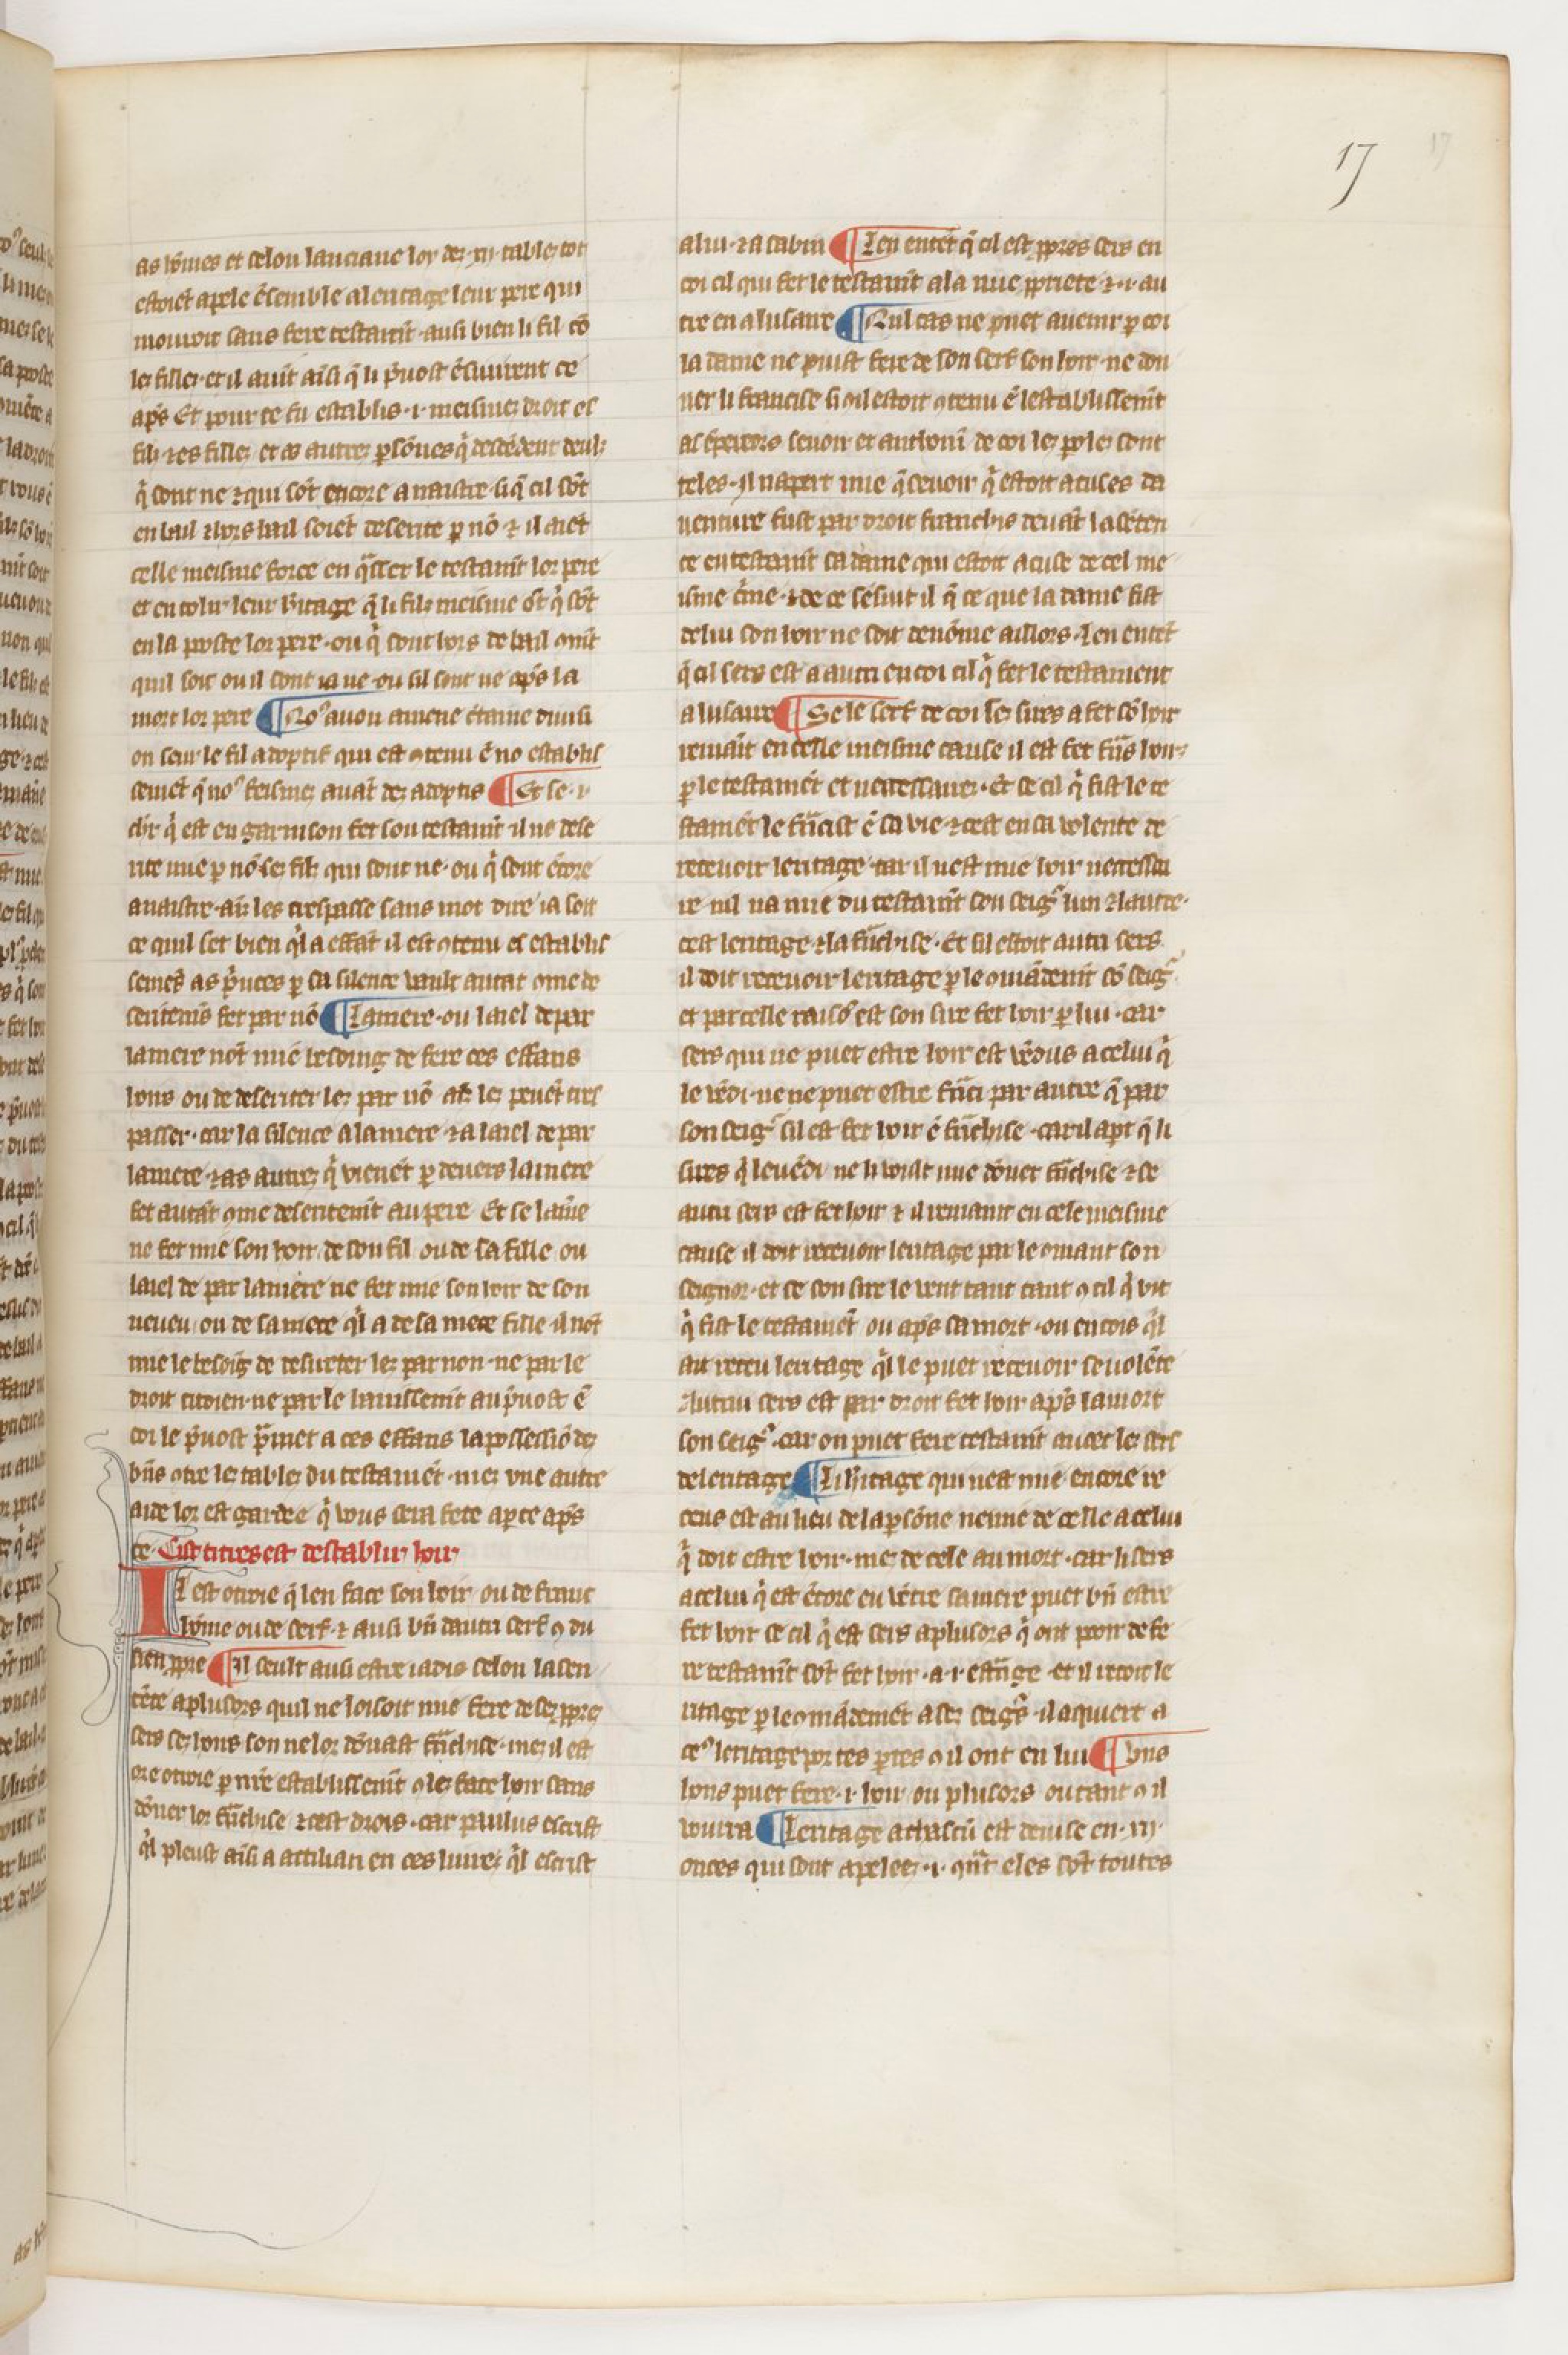 17
as hõmes et selon lanciane loy des .xij. tables tot
estoiẽt apele ẽsemble a leritage leur pere qui
moroit sans fere testamt̃ ausi bien li fil cõ
les filles et il avint aĩsi q̃ li p̃vost ẽsuivirent ce
ap̃s Et pour ce fu establis .i. meismes droit es
filz ⁊ es filles et as autres ꝑsõnes q̃ descẽdent deulz
q̃ sont ne ⁊ qui sõt encore a naistre si q̃ cil sõt
en bail ⁊ hors bail soiẽt deserite ꝑ nõ ⁊ il aiẽt
celle meisme force en q̃sser le testamt̃ lor pere
et en tolir leur h̃itage q̃ li filz meisme õt q̃ sõt
en la poste lor pere . ou q̃ sont hors de bail 9mt̃
quil soit ou il sont ia ne ou sil sont ne ap̃s la
mort lor pere ¶ No9 avon amene ẽtaine divisi
on seur le fil adoptif qui est 9tenu ẽ no establis
semẽt q̃ no9 feismes avãt des adoptis ¶ Et se .i.
chr̃ q̃ est en garnison fet son testamt̃ il ne dese
rite mie ꝑ nõ ses filz qui sont ne . ou q̃ sont ẽcore
a naistre . aĩz les trespasse sans mot dire ia soit
ce quil set bien q̃l a effãt il est 9tenu es establis
semẽs as p̃nces ꝑ sa silence vault autãt 9me de
seritemẽs fet par nõ ¶ La mere . ou laiel de par
la mere nõt mie besoing de fere ces effans
hoirs ou de deseriter les par nõ aĩz les peuẽt tres
passer . car la silence a la mere ⁊ a laiel de par
la mere ⁊ as autres q̃ vienẽt ꝑ devers la mere
fet autãt 9me deseritemt̃ au pere Et se la m̃e
ne fet mie son hoir de son fil ou de sa fille ou
laiel de par la mere ne fet mie son hoir de son
neveu ou de sa niece q̃l a de sa mere fille il nõt
mie le besoĩg de deseriter les par non . ne par le
droit citoien . ne par le banissemt̃ au p̃vost ẽ
coi le p̃vost p̃met a ces effans la possessiõ des
bñs 9tre les tables du testamẽt . mes vne autre
aide lor est gardee q̃ vous sera fete aperte ap̃s
ce . Cist titres est destablir hoir
Il est otroie q̃ len face son hoir ou de franc
hõme ou de serf . ⁊ ausi bñ dautri serf 9 du
sien ꝓpre ¶ Il seult ausi estre iadis selon la sen
tẽce a plusors quil ne loisoit mie fere de ses ꝓpres
sers ses hoirs son ne lor dõnast frãchise . mes il est
ore otroie ꝑ nr̃e establissemt̃ 9 les face hoir sans
dõner lor frãchise ⁊ cest drois . car paulus escrist
q̃l pleust aĩsi a attilian en ces livres q̃l escrist
a lui . ⁊ a sabin ¶ Len entẽt q̃ cil est ꝓpres sers en
coi cil qui fet le testamt̃ a la nue ꝓpriete ⁊ .i. au
tre en a lusaire ¶ Nul cas ne puet avenir ꝑ coi
la dame ne puist fere de son serf son hoir . ne don
ner li franchise si 9il estoit 9tenu ẽ lestablissemt̃
as empereors sevoir et anthoni de coi les ꝑoles sont
teles . Il napert mie q̃ cevoir q̃ estoit acuses da
venture fust par droit franchis devãt la sẽten
ce en testamt̃ sa dame qui estoit acuse de cel me
isme crĩme . ⁊ de ce sensuit il q̃ ce que la dame fist
de lui son hoir ne soit denõme aillors . Len entẽt
q̃ cil sers est a autri en coi cil q̃ fet le testament
a lusaire ¶ Se le serf de coi ses sires a fet sõ hoir
remaĩt en celle meisme cause il est fet frãs hoirs
ꝑ le testamẽt et necessaires . Et se cil q̃ fist le te
stamẽt le frãcist ẽ sa vie ⁊ cest en sa volente de
recevoir leritage . car il nest mie hoir necessai
re nil na mie du testamt̃ son seig̃r lun ⁊ lautre .
cest leritage ⁊ la frãchise . Et sil estoit autri sers
il doit recevoir leritage ꝑ le 9mãdemt̃ sõ seig̃r
et par celle raisõ est son sire fet hoir ꝑ lui . car
sers qui ne puet estre hoir est vẽdus a celui q̃
le vẽdi . ne ne puet estre frãci par autre q̃ par
son seig̃r sil est fet hoir ẽ frãchise . car il apt̃ q̃ li
sires q̃ le vẽdi ne li voult mie dõner frãchise ⁊ se
autri sers est fet hoir ⁊ il remaint en cele meisme
cause il doit recevoir leritage par le 9mant son
seignor . et se son sire le vent tant tant 9 cil q̃ vit
q̃ fist le testamẽt ou ap̃s sa mort . ou encois q̃l
ait receu leritage q̃l le puet recevoir se volẽte
Autrui sers est par droit fet hoir ap̃s la mort
son seig̃r . car on puet fere testamt̃ avec les sers
de leritage ¶ Li h̃itage qui nest mie encore re
ceus est au lieu de la ꝑsõne ne mie de celle a celui
q̃ doit estre hoir . mes de cele au mort . car li sers
a celui q̃ est ẽcore en vẽtre sa mere puet bñ estre
fet hoir se cil q̃ est sers a plusors q̃ ont pooir de fe
re testamt̃ sõt fet hoir . a .i. estrãge et il recoit le
ritage ꝑ le 9mãdemẽt a ses seig̃rs il aquiert a
ces leritage por tes ꝑties 9 il ont en lui ¶ Vns
hons puet fere .i. hoir ou plusors ou tant 9 il
voura ¶ Leritage a chascũ est devise en .xij.
onces qui sont apelees .i. 9mt̃ eles sõt toutes